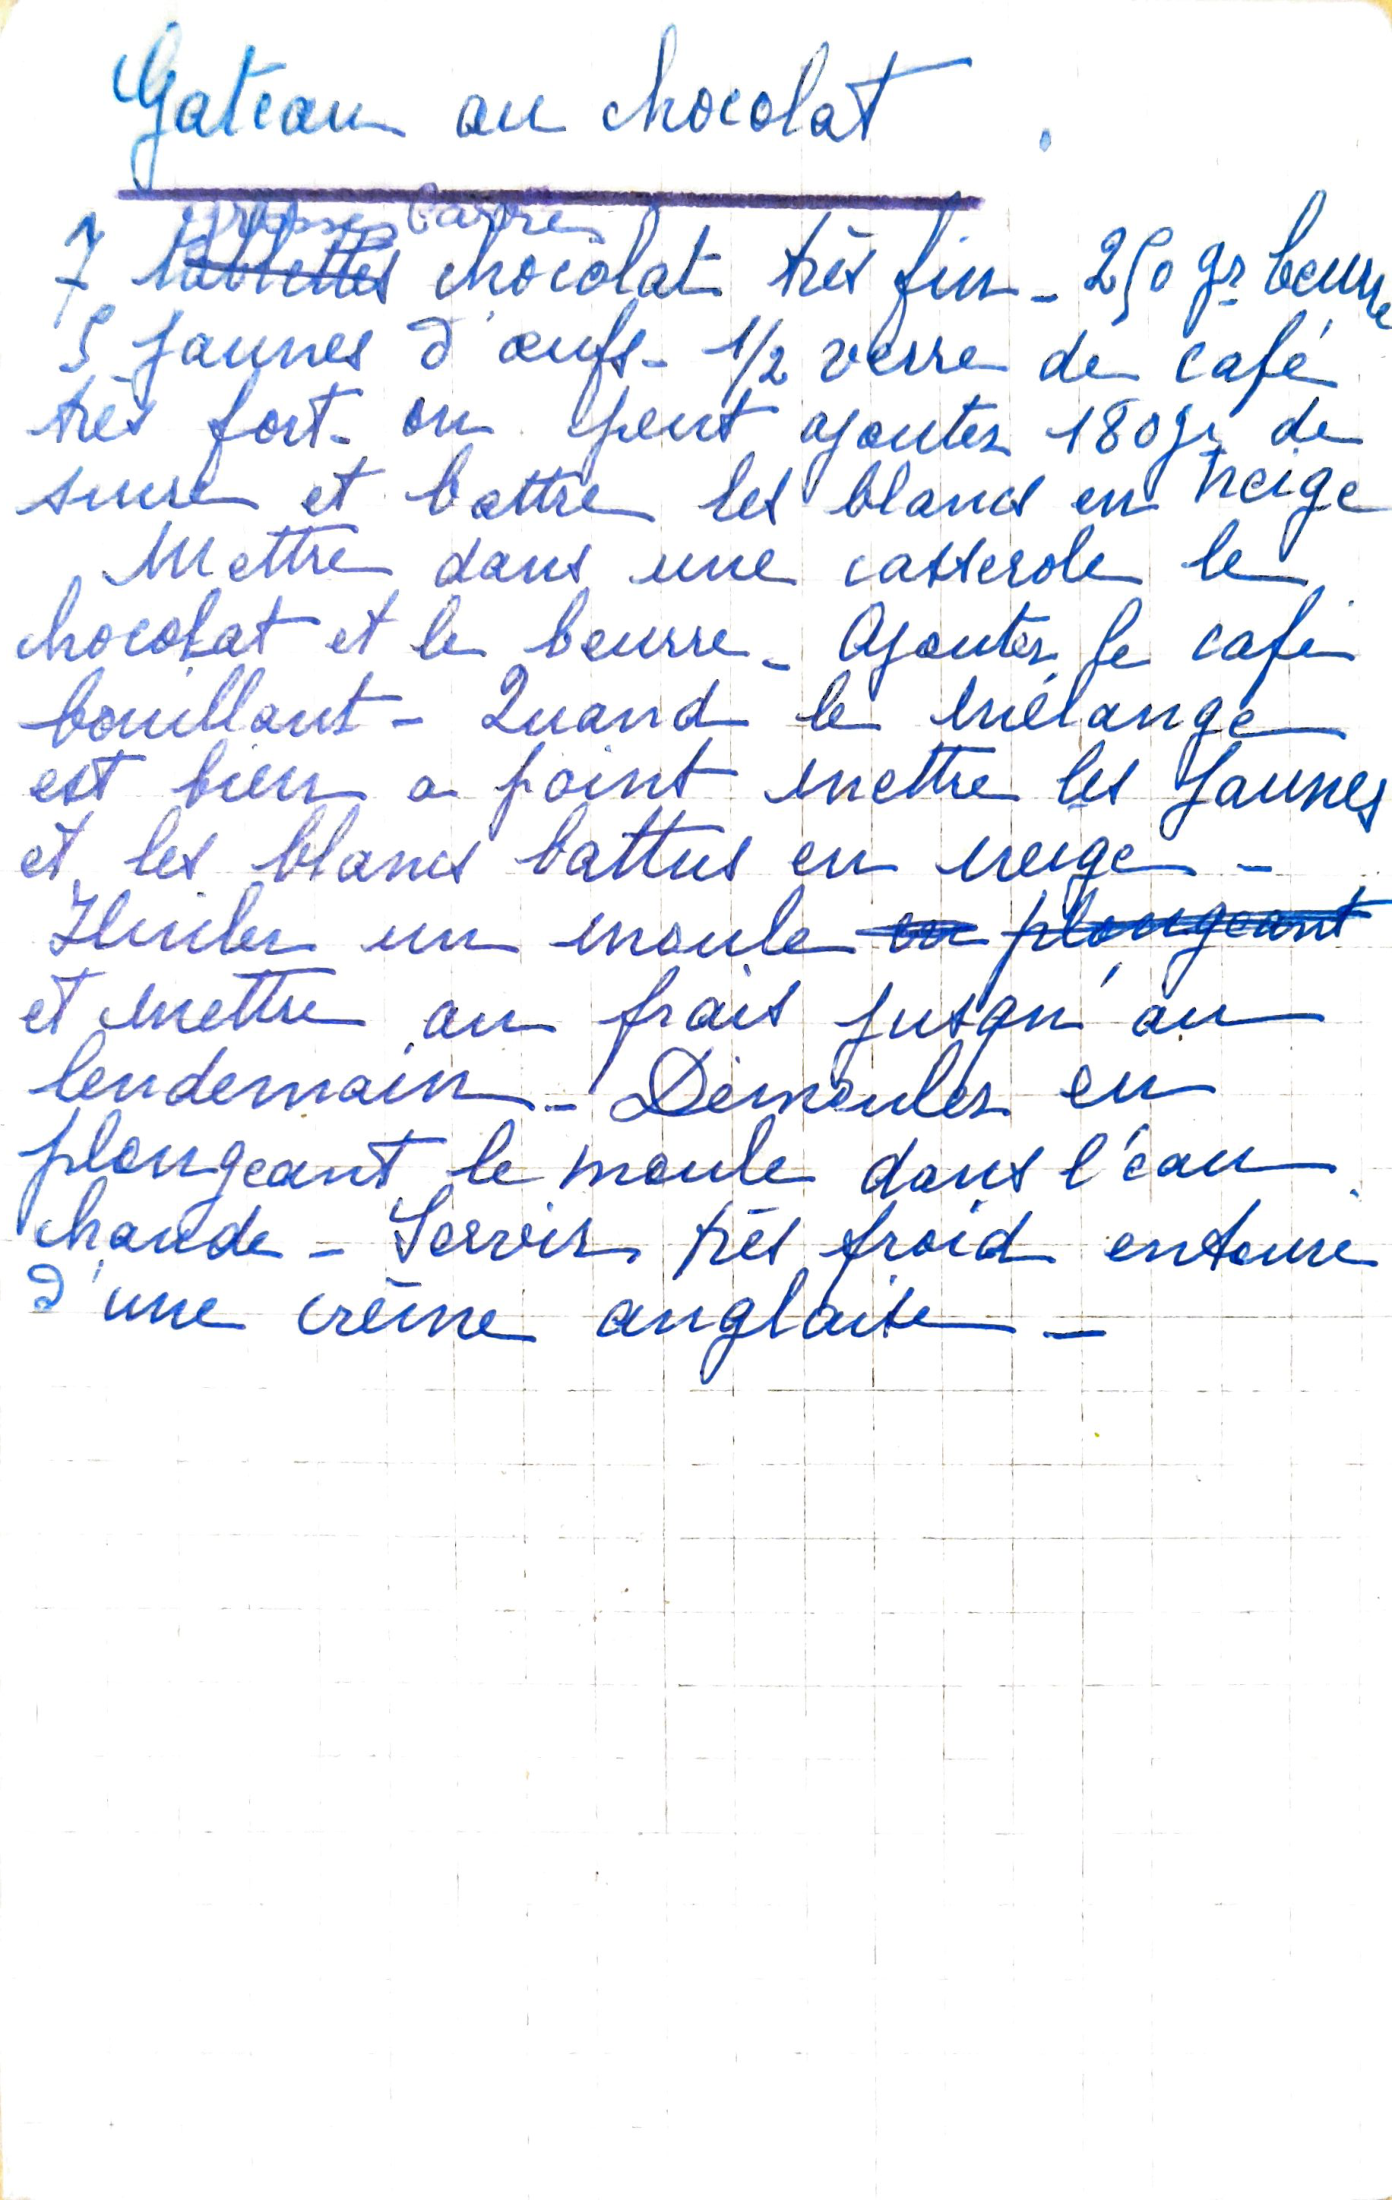 Gateau au chocolat
grosses barres
7 tablettes chocolat très fin - 250 gr beurre
5 jaunes d'œufs - 1/2 verre de café
très fort - on peut ajouter 180 gr de
sucre et battre les blancs en neige
Mettre dans une casserole le
chocolat et le beurre - Ajouter le café
bouillant - Quand le mélange
est bien a point mettre les jaunes
et les blancs battus en neige -
Huiler un moule en plongeant
et mettre au frais jusqu'au
lendemain - Démouler en
plongeant le moule dans l'eau
chaude - Servir très froid entouré
d'une crème anglaise -